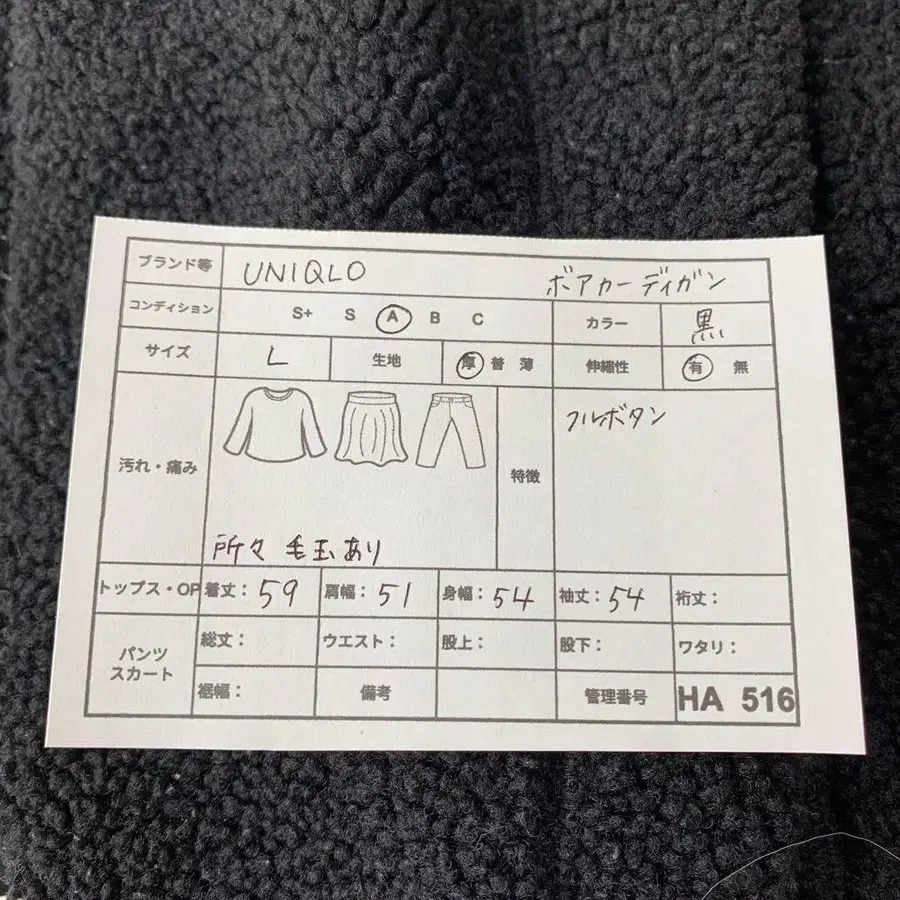 ブランド等 UNIQLO ボアカーディガン
コンディション S+ S A B C カラー 黒
サイズ L 生地 厚 普 薄 伸縮性 有 無
汚れ・痛み 特徴 フルボタン
所々 毛玉あり
トップス・OP 着丈：59 肩幅：51 身幅：54 袖丈：54 裄丈：
パンツ スカート 総丈： ウエスト： 股上： 股下： ワタリ：
裾幅： 備考 管理番号 HA 516